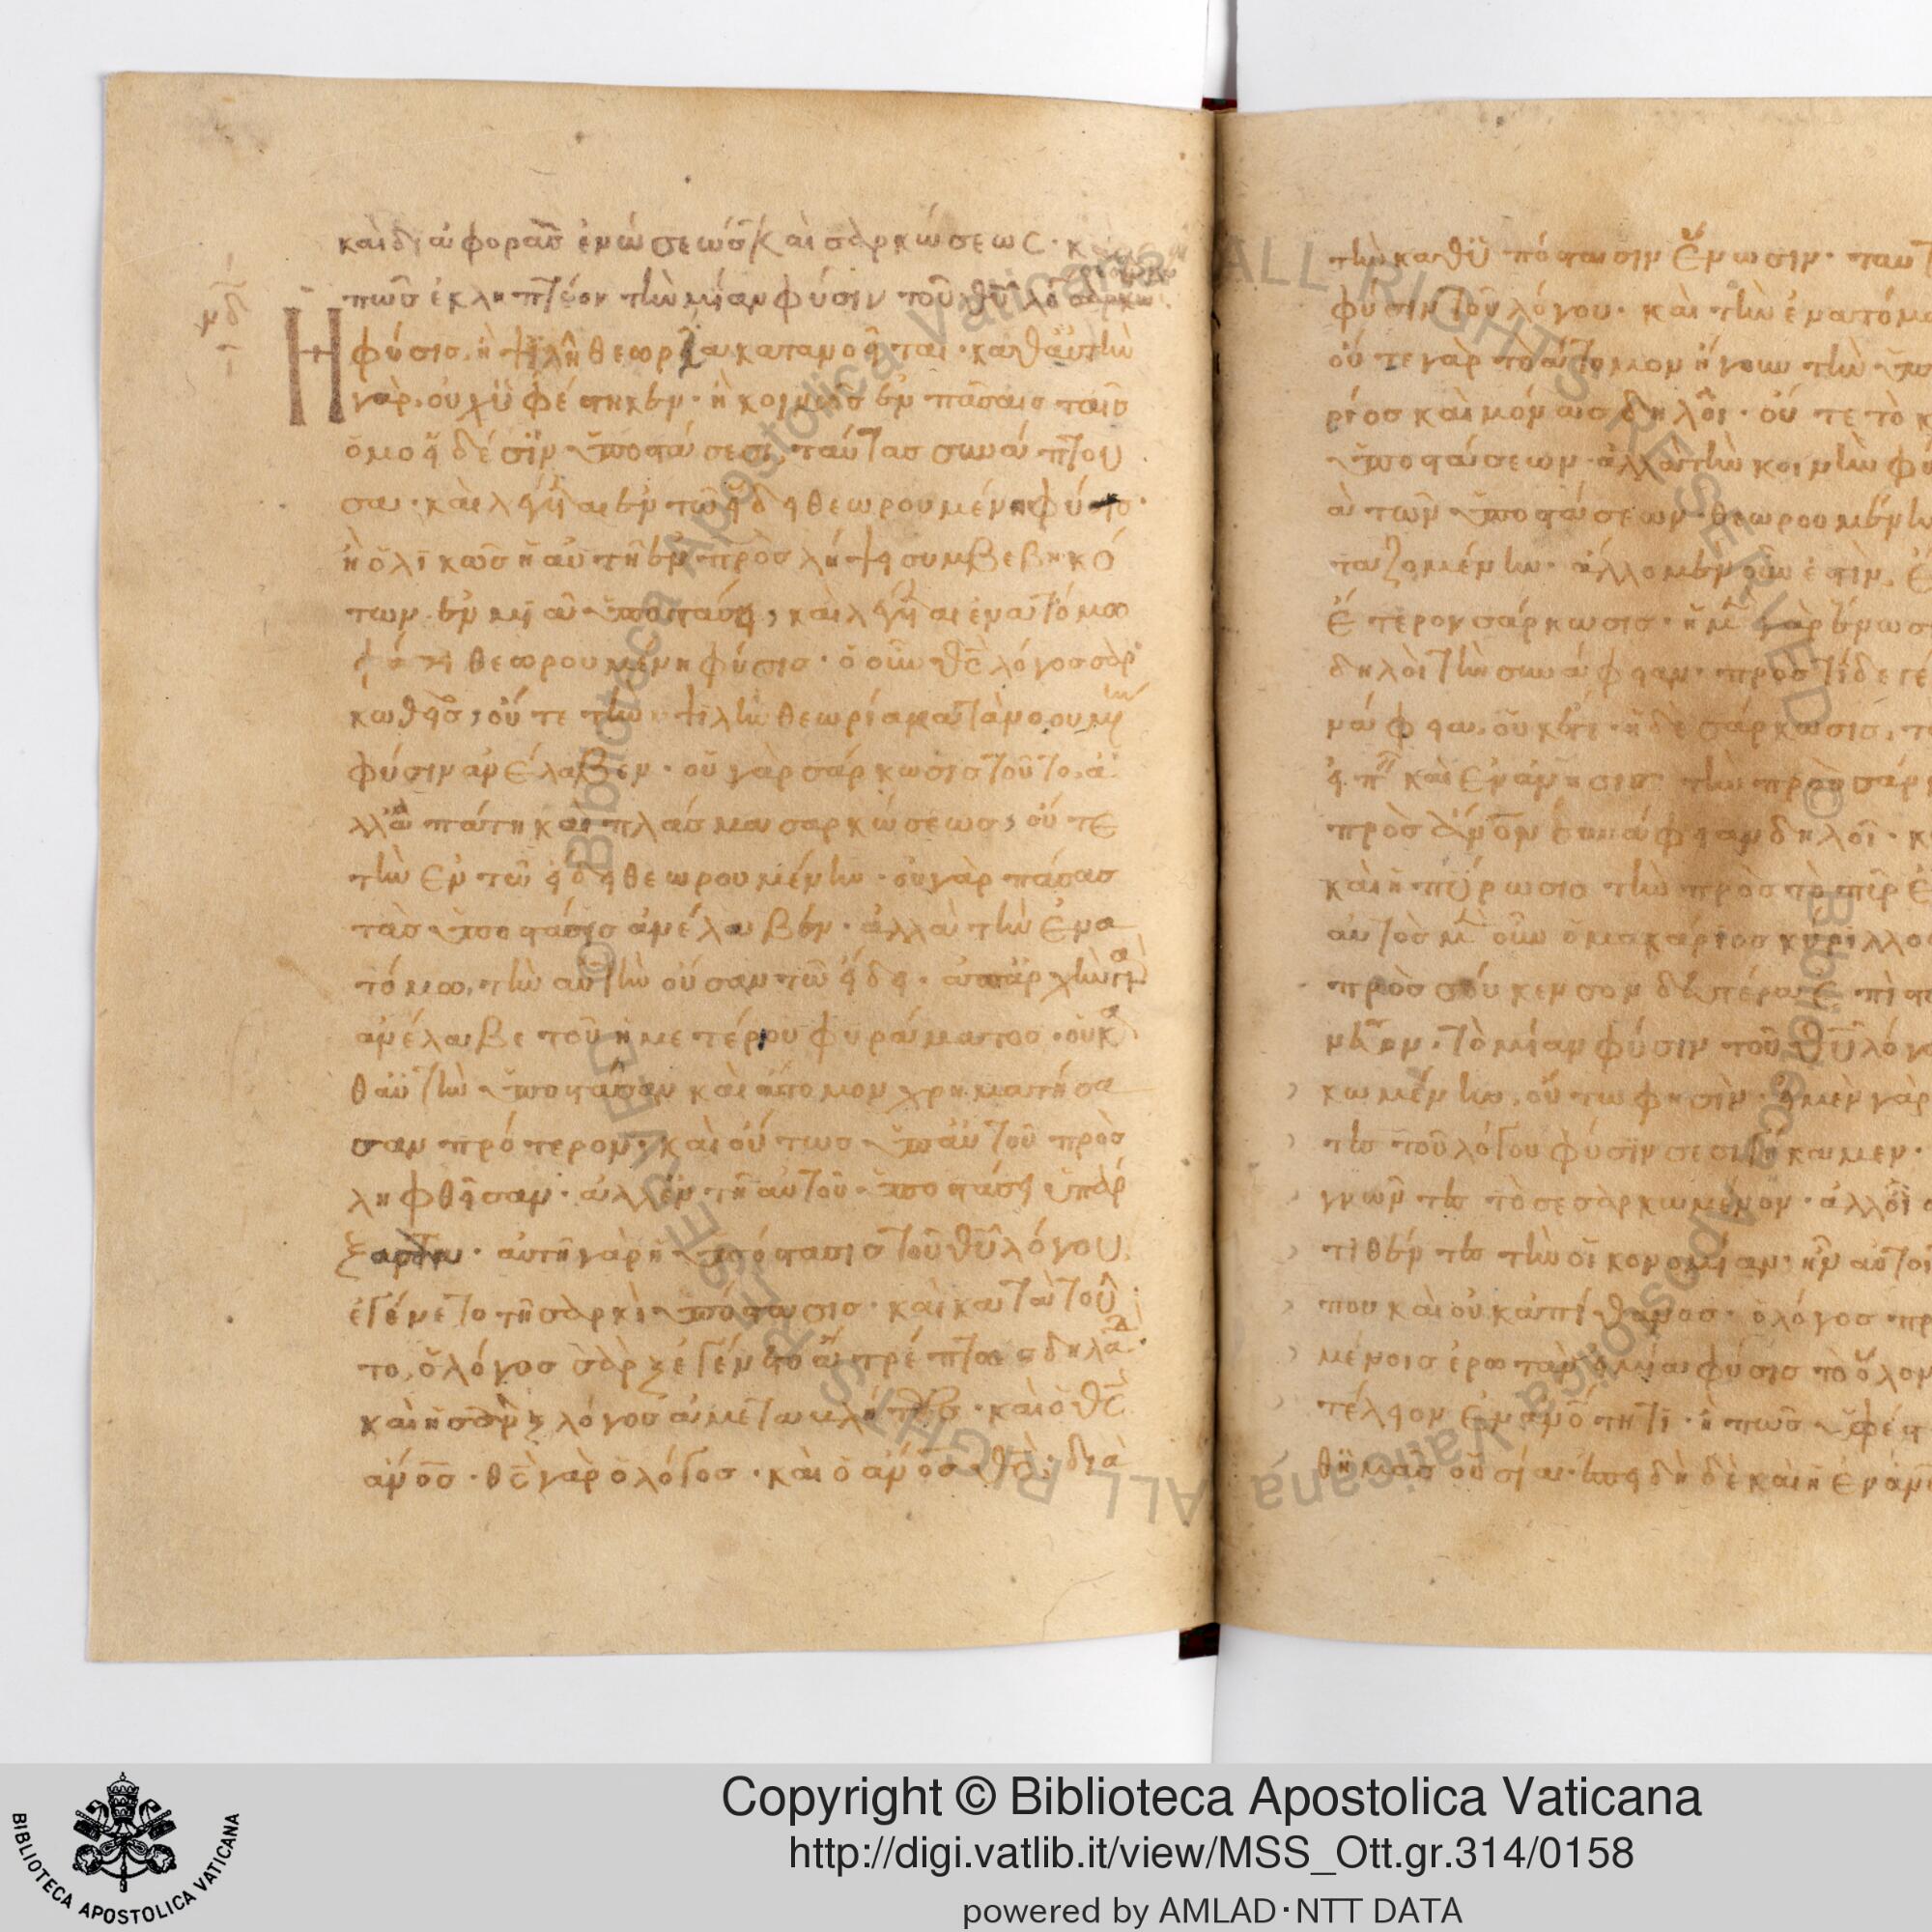 καὶ διαφορᾶς ἑνώσεως καὶ σαρκώσεως· κ
πῶς ἐκληπτέον τὴν μίαν φύσιν τοῦ θυ λό σαρκω
Ἡ φύσις, ἢ ψιλῆ θεωρία κατανοεῖται· καθ αὑτὴν
γὰρ, οὐχ ὑφέστηκεν· ἢ κοινῶς ἐν πάσαις ταῖς
ὁμοειδέσιν ὑποστάσεσι, ταύτας συνάπτου
σα· καὶ λέγεται ἐν τῶ εἴδει θεωρουμένη φύσις·
ἢ ὁλικῶς ἡ αὐτὴ ἐν προσλήψει συμβεβηκό
των ἐν μιᾶ ὑποστάσει, καὶ λέγεται ἐν ἀτόμω
θεωρουμένη φύσις· ὁ οὖν θς λόγος σαρ
κωθεὶς, οὔτε τὴν ψιλῆ θεωρία κατανοουμένην
φύσιν ἀνέλαβεν· οὐ γὰρ σάρκωσις τοῦτο, ἀ
λλ ἀπάτη καὶ πλάσμα σαρκώσεως, οὔτε
τὴν ἐν τῶ εἴδει θεωρουμένην· οὐ γὰρ πάσας
τὰς ὑποστάσεις ἀνέλαβεν· ἀλλὰ τὴν ἐν α
τόμω, τὴν αὐτὴν οὖσαν τῶ εἴδει· ἀπαρχὴν γὰρ
ἀνέλαβε τοῦ ἡμετέρου φυράματος· οὐ κα
θ αὑτὴν ὑποστᾶσαν καὶ ἄτομον χρηματίσα
σαν πρότερον· καὶ οὕτως ὑπ αὐτοῦ προς
ληφθεῖσαν· ἀλλ ἐν τῆ αὐτοῦ ὑποστάσει ὑπάρ
ξασαν· αὐτὴ γὰρ ἡ ὑπόστασις τοῦ θυ λόγου,
ἐγένετο τῆ σαρκὶ ὑπόστασις· καὶ κατὰ τοῦ
το, ὁ λόγος σὰρξ ἐγένετο ἀτρέπτως δηλαδή·
καὶ ἡ σὰρξ λόγος ἀμεταβλήτως· καὶ ὁ θς
ἄνος· θς γὰρ ὁ λόγος· καὶ ὁ ἄνος θς· διὰ
τὴν καθ ὑπόστασιν ἕνωσιν· ταυτ
φύσιν τοῦ λόγου· καὶ τὴν ἐν ατόμω
οὔτε γὰρ τὸ ἄτομον ἤγουν τὴν ὑπο
ρίος καὶ μόνως δηλοῖ· οὔτε τὸ κ
ὑποστάσεων· ἀλλὰ τὴν κοινὴν φύ
α τῶν ὑποστάσεων θεωρουμένην
ταζομένην· ἄλλο μὲν οὖν ἐστιν, ἕ
ἕτερον σάρκωσις· ἡ μὲν γὰρ ἕνωσ
δηλοῖ τὴν συνάφειαν· πρὸς τί δὲ γέ
νάφεια, οὐκέτι· ἡ δὲ σάρκωσις, τ
καὶ ἐνανθρώπησις τὴν πρὸς σάρκ
πρὸς ἄνον συνάφειαν δηλοῖ· κ
καὶ ἡ πύρωσις τὴν πρὸς τὸ πῦρ ἕ
αὐτὸς μὲν οὖν ὁ μακάριος κύριλλος
πρὸς σούκενσον δευτέρα ἐπιστ
τὸ μίαν φύσιν τοῦ θυ λόγο
κωμένην, οὕτω φησὶν· εἰ μὲν γὰρ
τες τοῦ λόγου φύσιν σεσιγήκαμεν·
γνωμ τες τὸ σεσαρκωμένην· ἀλλ οἷ
τιθέντες τὴν οἰκονομίαν· ἦν αὐτοῖ
που καὶ οὐκ ἀπίθανος· ὁ λόγος πρ
μένοις ἐρωτᾶν, εἰ μία φύσις τὸ ὅλον
τέλειον ἐν ανότητι· ἢ πῶς ὑφέστ
θ ἡμᾶς οὐσία· ἐπειδὴ δὲ καὶ ἡ ἐν αν
Copyright © Biblioteca Apostolica Vaticana
http://digi.vatlib.it/view/MSS_Ott.gr.314/0158
powered by AMLAD·NTT DATA
BIBLIOTECA APOSTOLICA VATICANA
© Biblioteca Apostolica Vaticana ALL RIGHTS RESERVED